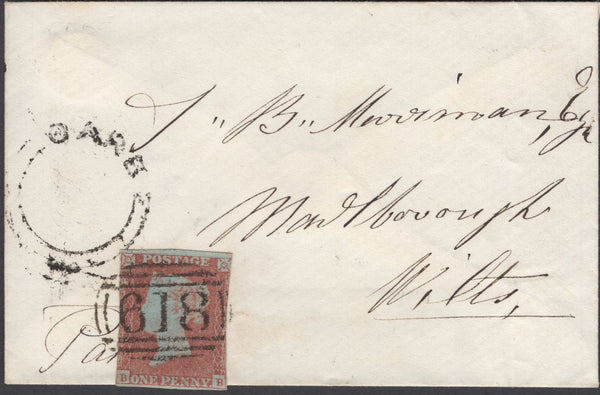 OARE
T,, B,, Merriman, Esqr
Marlborough
Wilts,
POSTAGE
618
B ONE PENNY B